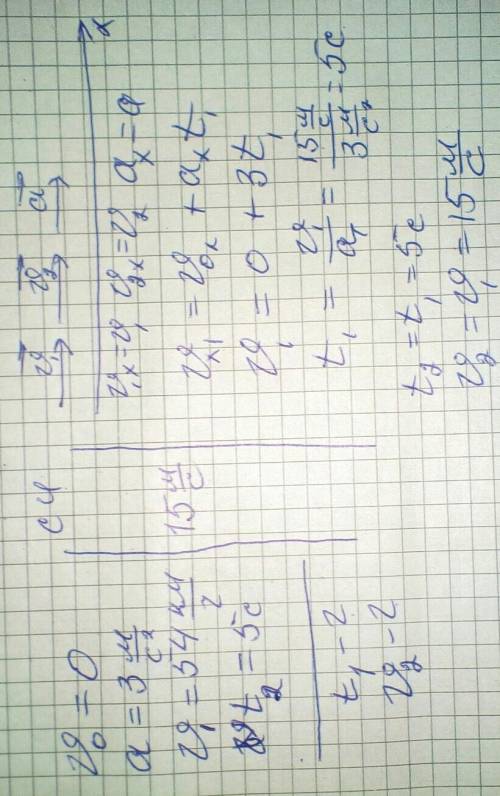 v₀ = 0
a = 3 м/с²
v₁ = 54 км/г
t₂ = 5с
t₁ - ?
v₂ - ?
СИ
15 м/с
v₁ v₂ a
x
v₁ₓ = v₁ v₂ₓ = v₂ aₓ = a
vₓ₁ = v₀ₓ + aₓt₁
v₁ = 0 + 3t₁
t₁ = v₁/a₁ = 15 м/с / 3 м/с² = 5с
t₂ = t₁ = 5с
v₂ = v₁ = 15 м/с